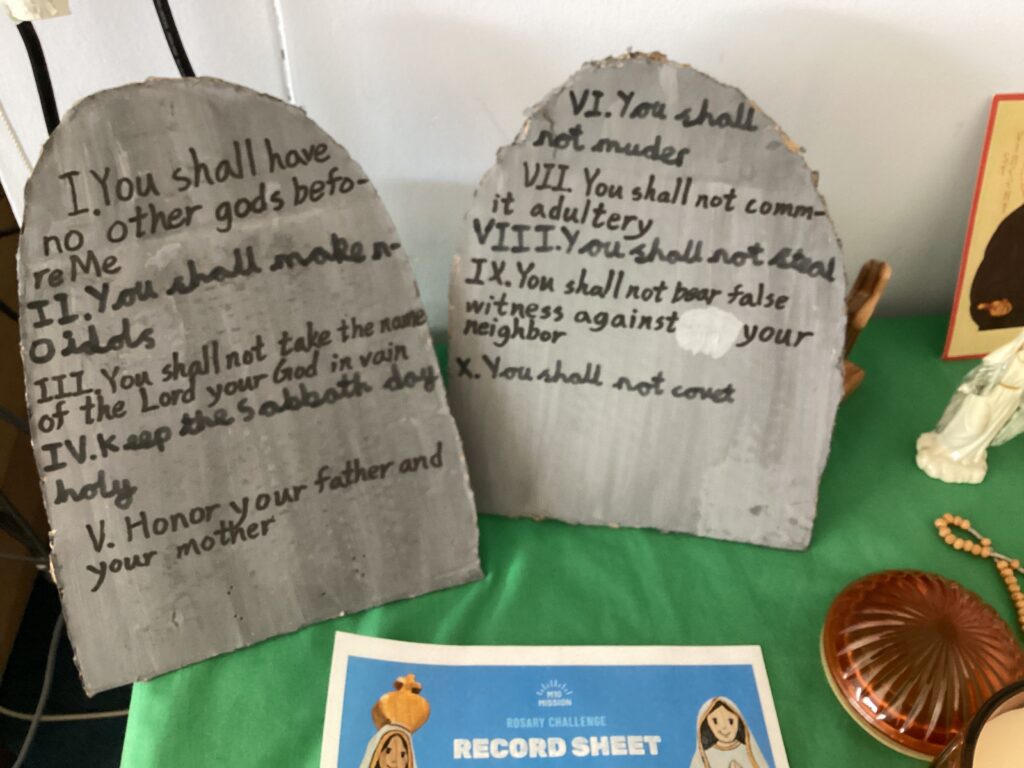 I. You shall have
no other gods befo-
re Me
II. You shall make n-
o idols
III. You shall not take the name
of the Lord your God in vain
IV. Keep the Sabbath day
holy
V. Honor your father and
your mother
VI. You shall
not muder
VII. You shall not comm-
it adultery
VIII. You shall not steal
IX. You shall not bear false
witness against your
neighbor
X. You shall not covet
M10
MISSION
ROSARY CHALLENGE
RECORD SHEET